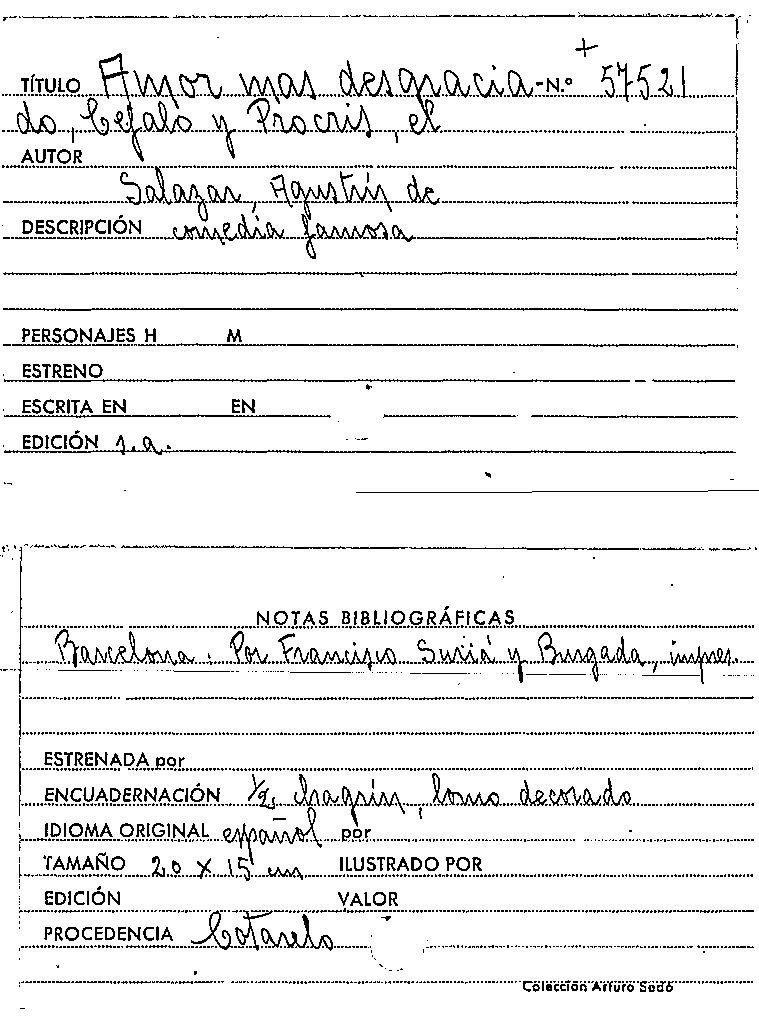 +
TÍTULO Amor mas desgracia- N.º 57521
do, Cefalo y Procris, el
AUTOR
Salazar, Agustín de
DESCRIPCIÓN comedia famosa
PERSONAJES H M
ESTRENO
ESCRITA EN EN
EDICIÓN s.a.
NOTAS BIBLIOGRÁFICAS
Barcelona. Por Francisco Suriá y Burgada, impres.
ESTRENADA por
ENCUADERNACIÓN 1/2 chagrín, lomo decorado
IDIOMA ORIGINAL español por
TAMAÑO 20 x 15 cm ILUSTRADO POR
EDICIÓN VALOR
PROCEDENCIA Cotarelo
Colección Arturo Sedó